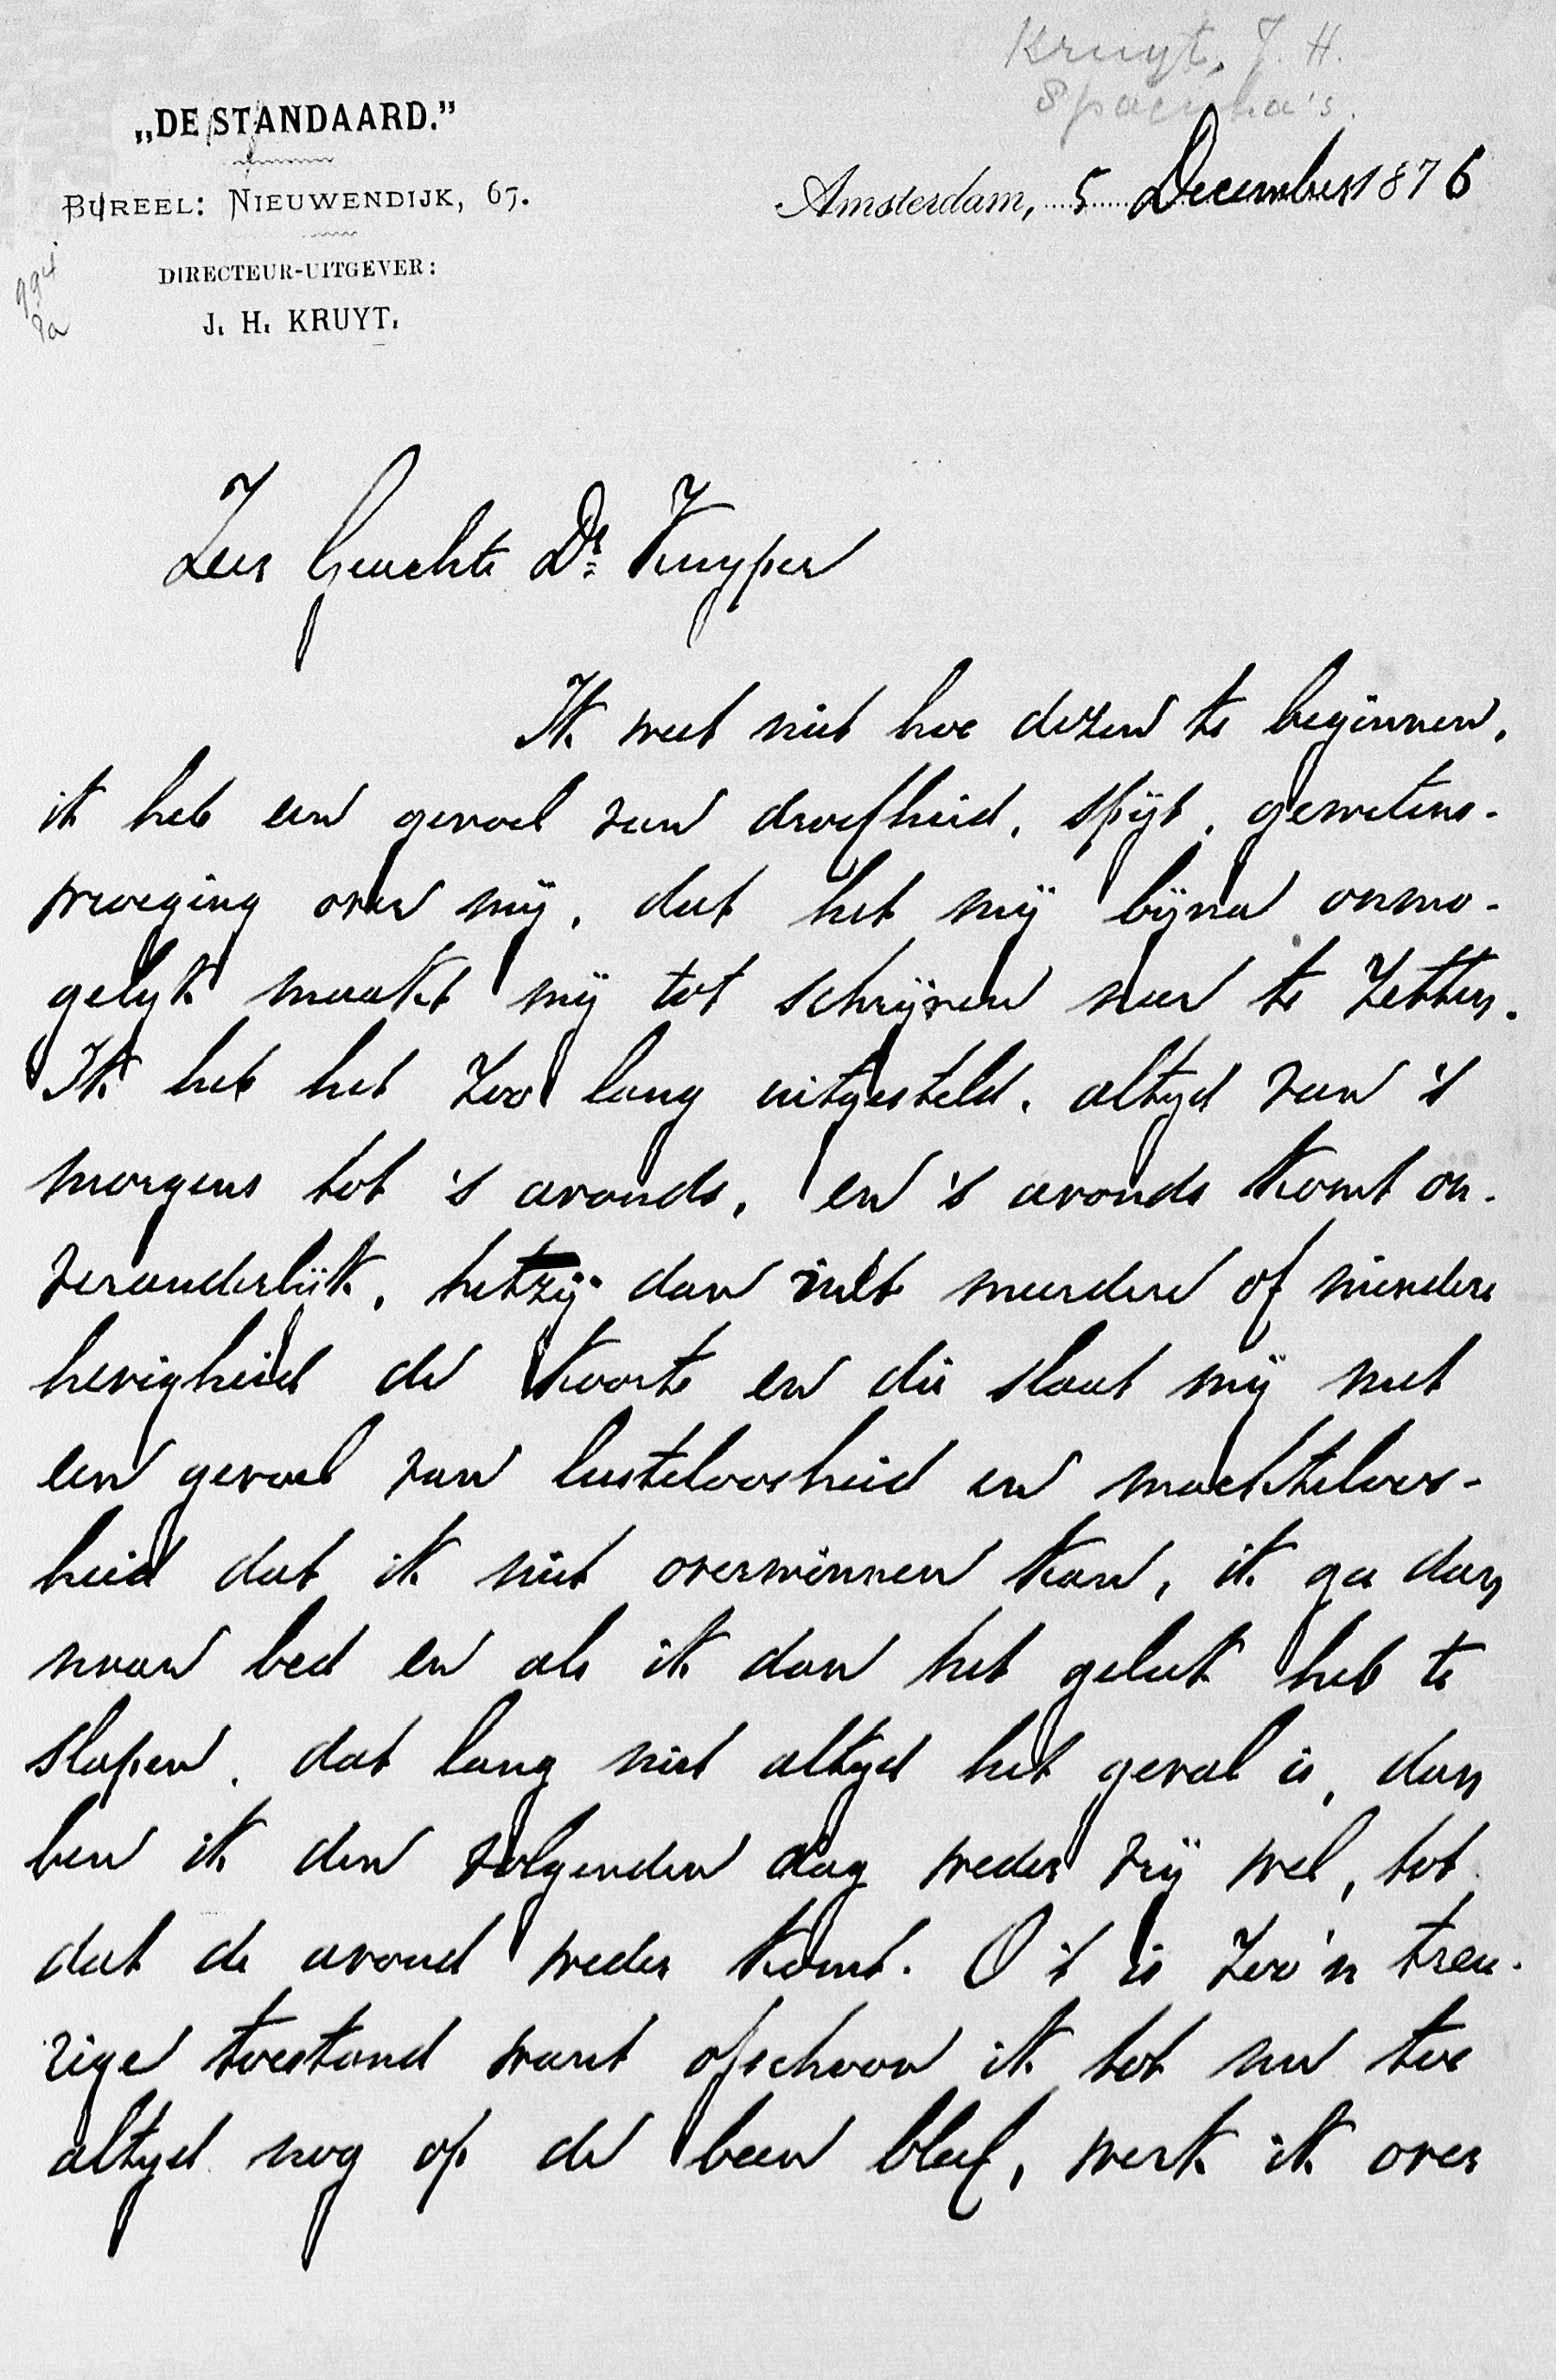 Kruyt, J. H.
„DE STANDAARD.”
BUREEL: NIEUWENDIJK, 67.
Amsterdam, 5 December 1876
DIRECTEUR-UITGEVER:
J. H. KRUYT.
994
Zeer Geachte Dr Kuyper
Ik weet niet hoe dezen te beginnen,
ik heb een gevoel van droefheid, spijt, gewetens-
wroeging over mij, dat het mij bijna onmo-
gelyk maakt mij tot schrijven neer te zetten.
Ik heb het zoo lang uitgesteld, altyd van 's
morgens tot 's avonds, en 's avonds komt on-
veranderlijk, hetzij dan met meerdere of mindere
hevigheid de koorts en die slaat mij met
een gevoel van lusteloosheid en machteloos-
heid dat ik niet overwinnen kan, ik ga dan
naar bed en als ik dan het geluk heb te
slapen, dat lang niet altyd het geval is, dan
ben ik den volgenden dag weder vrij wel, tot
dat de avond weder komt. O 't is zoo'n treu-
rige toestand want ofschoon ik tot nu toe
altyd nog op de been bleef, werk ik over